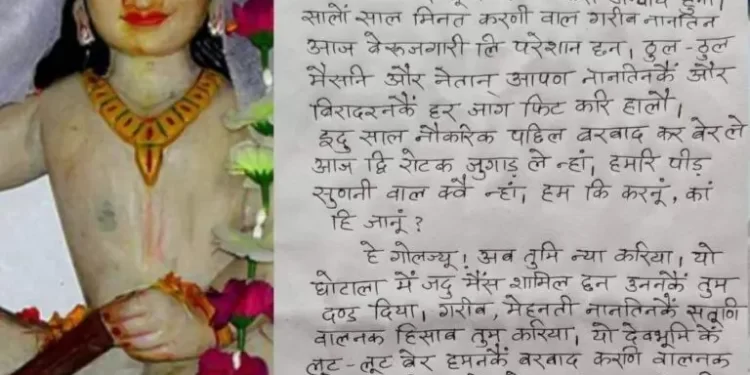 सालों साल मिनत करणी वाल गरीब नानतिन
आज बेरुजगारी लि परेशान हन, ठुल-ठुल
मैसनि और नेतान् आपण नानतिनकैं और
बिरादरनकैं हर जाग फिट करि हालौ,
इदु साल नौकरिक पछिल बरबाद कर बेर ले
आज द्वि रोटक जुगाड़ ले न्हां, हमरि पीड़
सुणनी वाल क्वै न्हां, हम कि करनूं, कां
हि जानूं ?
हे गोलज्यू ! अब तुमि न्या करिया, यो
घोटाला में जदु मैंस शामिल छन उननकैं तुम
दण्ड दिया, गरीब, मेहनती नानतिनकैं सतूणि
वालनक हिसाब तुम करिया, यो देवभूमि कें
लूट-लूट बेर हमनकैं बरबाद करणि वालनक